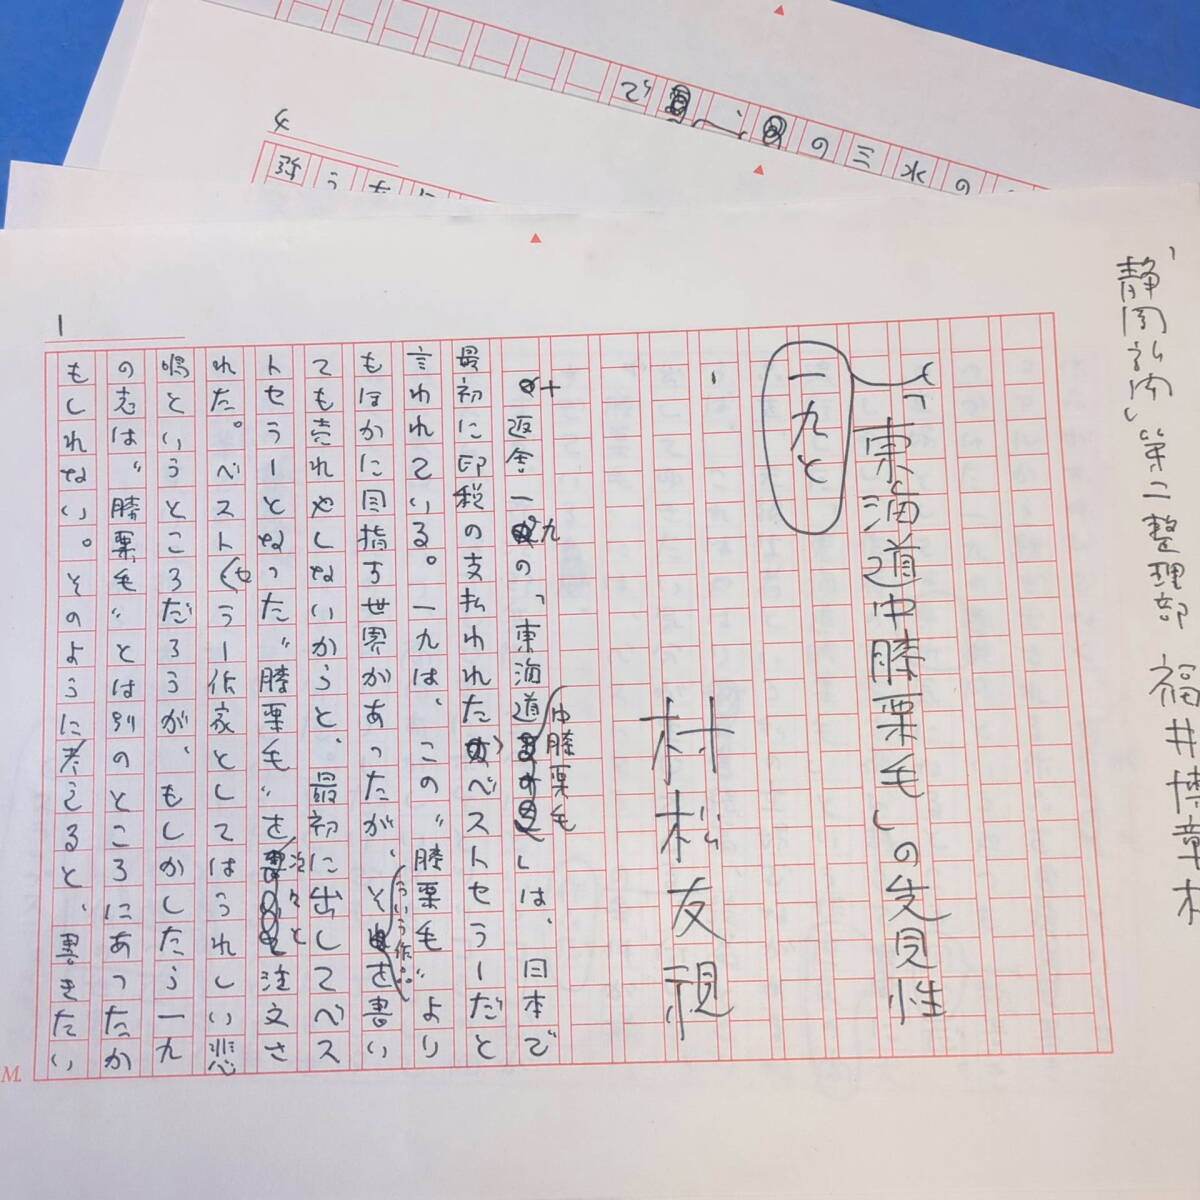 「静岡弘南」第二整理部 福井博章様
一九と
「東海道中膝栗毛」の先見性
村松友視
十返舎一九の「東海道中膝栗毛」は、日本で
最初に印税の支払われたベストセラーだと
言われている。一九は、この〝膝栗毛〟より
もほかに目指す世界があったが、そういう作品を書い
ても売れやしないからと、最初に出してベス
トセラーとなった〝膝栗毛〟を次々と注文さ
れた。ベストセラー作家としてはうれしい悲
鳴というところだろうが、もしかしたら一九
の志は〝膝栗毛〟とは別のところにあったか
もしれない。そのように考えると、書きたい
1
4
弥うな
の水三の
で
M.